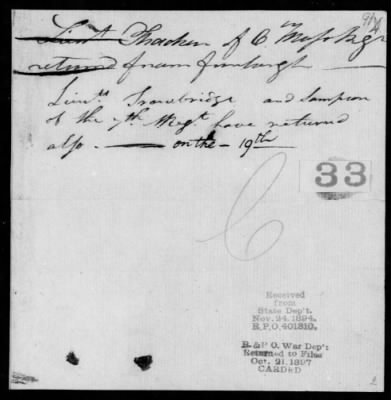 Lieut Thacher of 6th Mass Regt
returned from furlough
Lieuts Trowbridge and Sampson
of the 7th Regt have returned
also — on the — 19th
33
Received
from
State Dep't.
Nov. 24. 1894.
R.P.O. 401810.
R. & P. O. War Dep't
Returned to Files
Oct. 21. 1897
CARDED